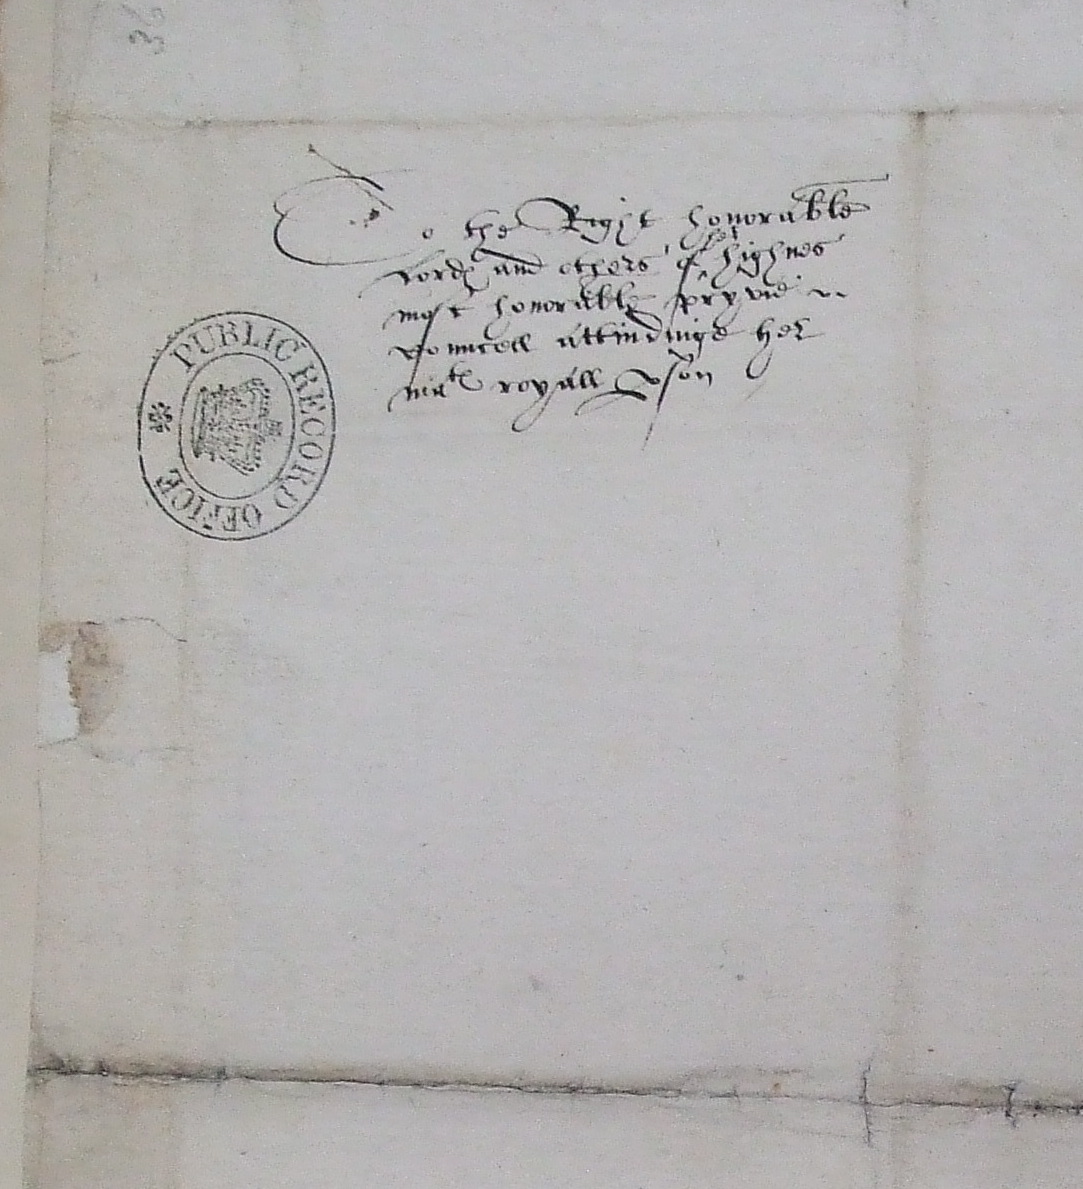 36
To the Right honorable
lordℯ and others of her highnes
most honorable pryvie
councell attindinge her
matie royall pson
PUBLIC RECORD OFFICE